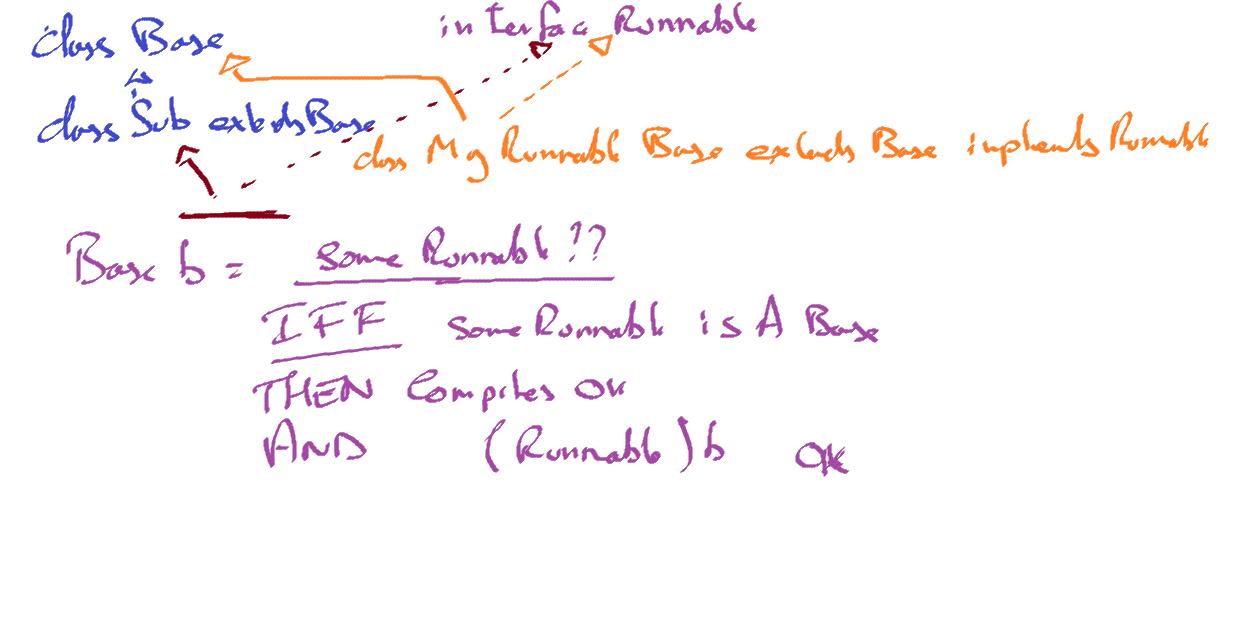 class Base
interface Runnable
class Sub extends Base
class My Runnable Base extends Base implements Runnable
Base b = some Runnable??
IFF some Runnable is A Base
THEN Compiles OK
AND (Runnable) b OK